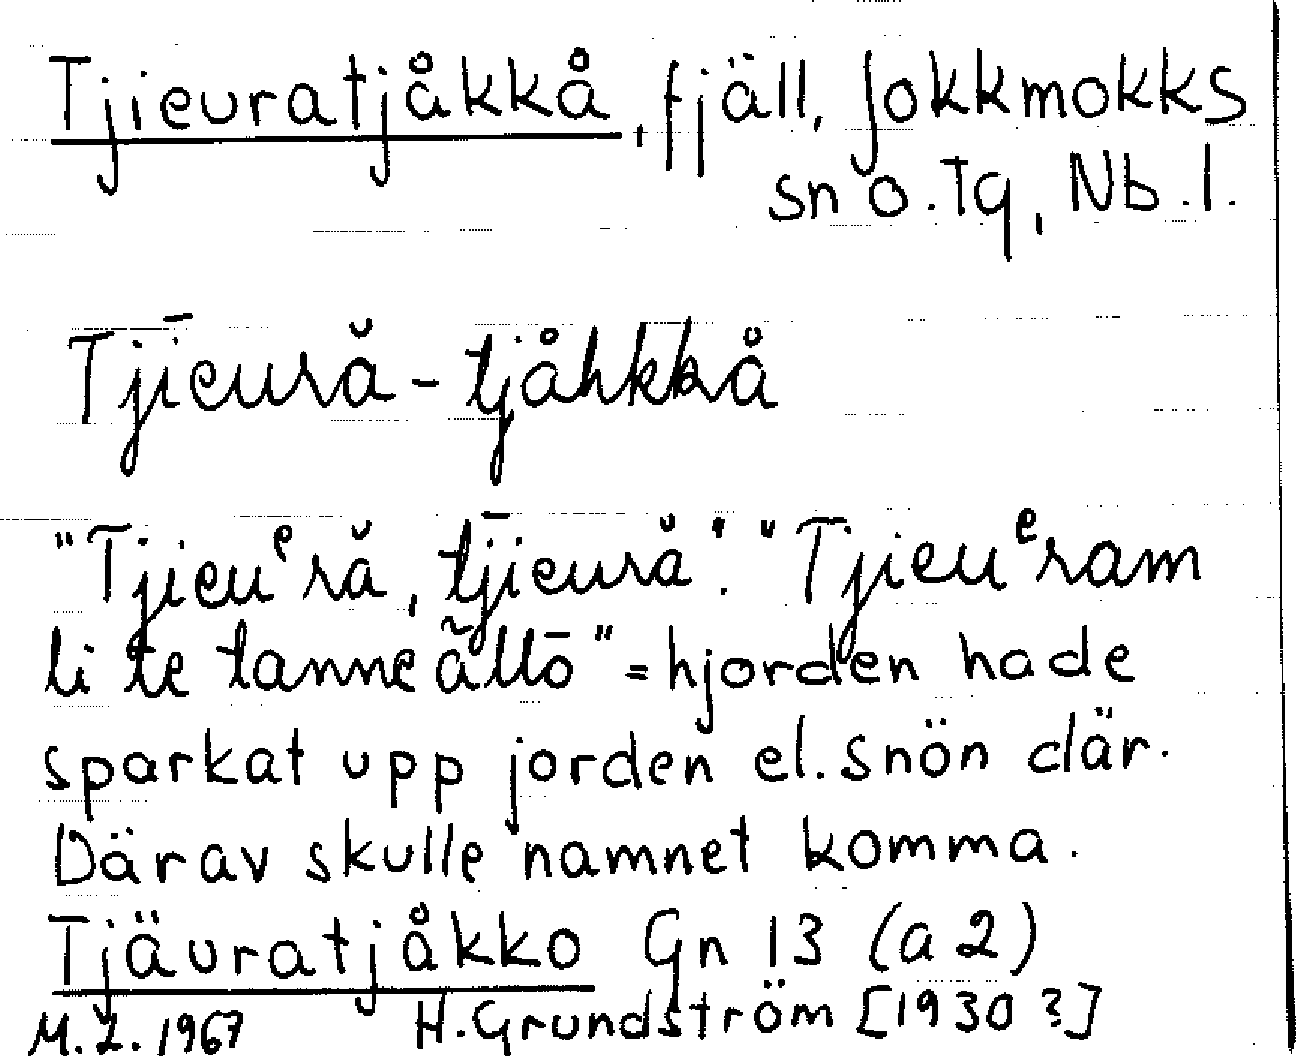 Tjieuratjåkkå, fjäll, Jokkmokks
sn o. tg, Nb. l.
Tjīeurå̆-tjåhkkå
"Tjieuᵉră, tjīeură". "Tjieuᵉram
li te tanne ällō" = hjorden hade
sparkat upp jorden el. snön där.
Därav skulle namnet komma.
Tjäuratjåkko Gn 13 (a 2)
M. Z. 1967 H. Grundström [1930?]